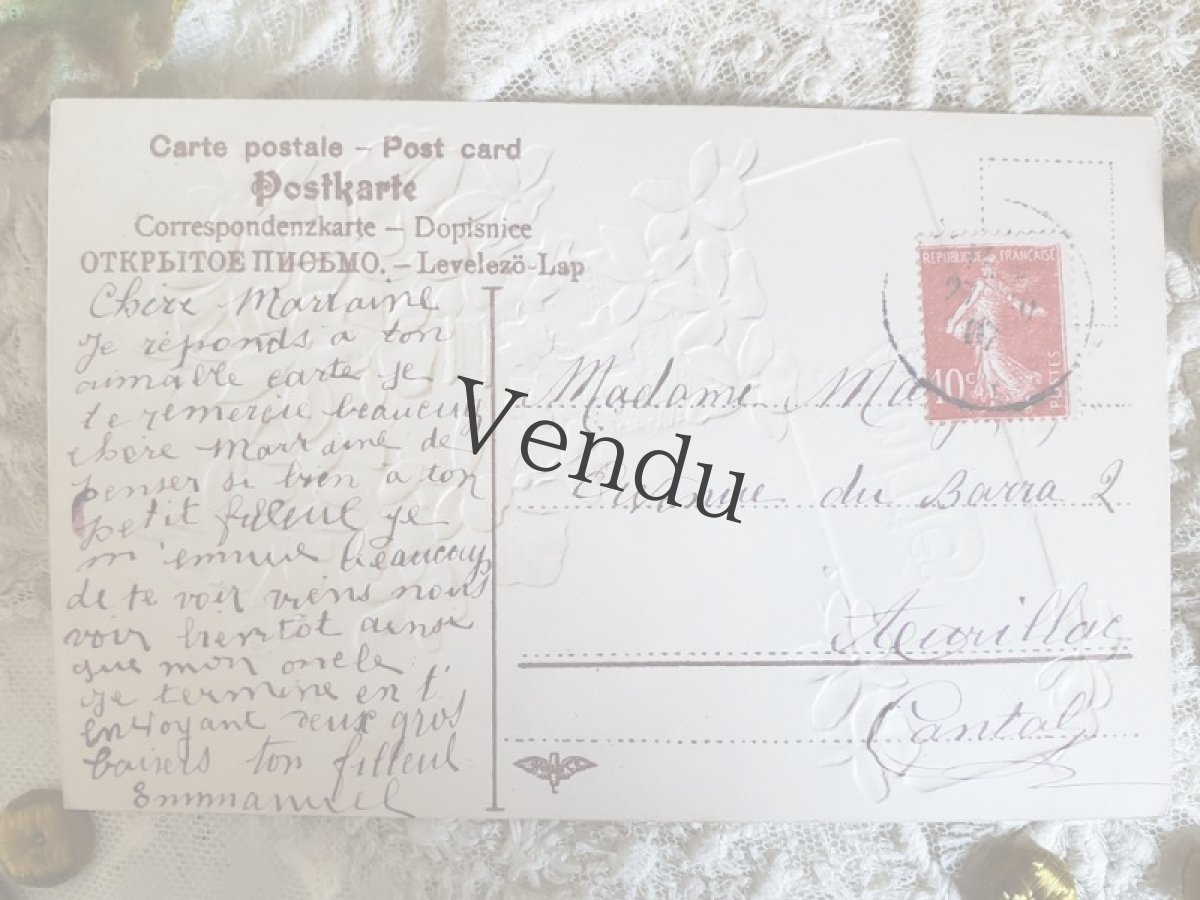 Carte postale – Post card
Postkarte
Correspondenzkarte – Dopisnice
ОТКРЫТОЕ ПИСЬМО. – Levelezö-Lap
Chère Marraine
je réponds a ton
aimable carte je
te remercie beaucoup
chère Marraine de
penser si bien a ton
petit filleul je
m'ennuie beaucoup
de te voir viens nous
voir bientôt ainsi
que mon oncle
je termine en t'
envoyant deux gros
baisers ton filleul
Emmanuel
REPUBLIQUE FRANÇAISE
10 c
POSTES
Madame
du Barra 2
Aurillac
Cantal
Vendu